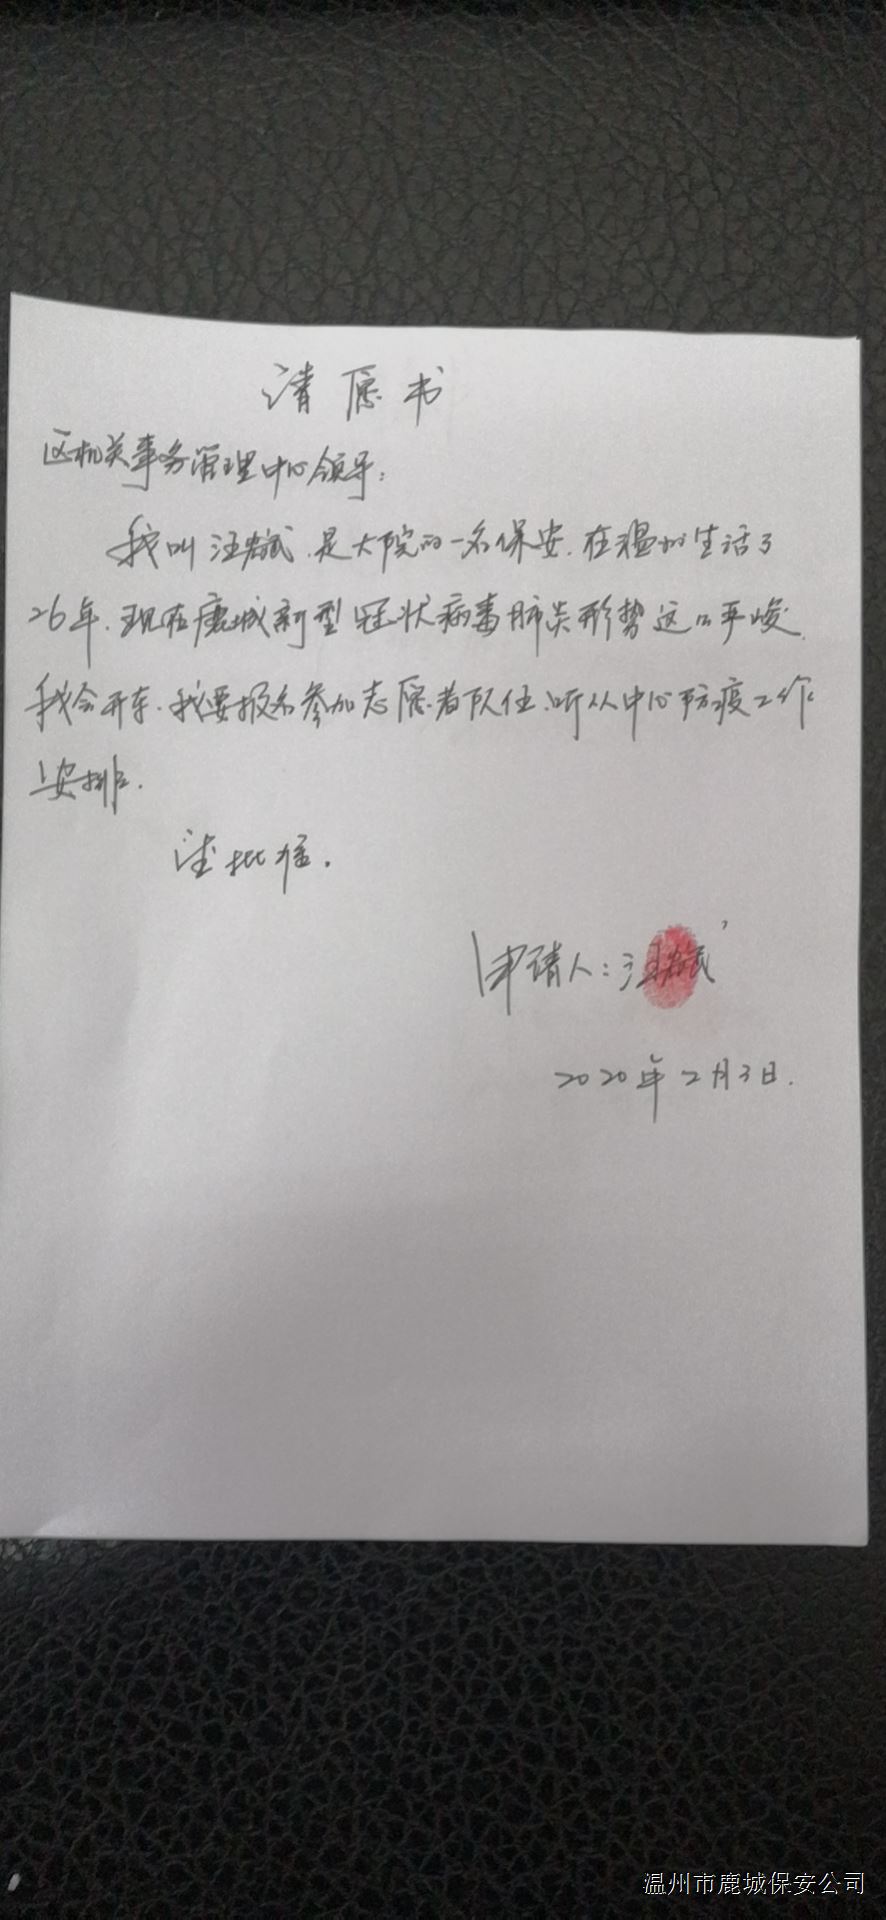 请愿书
区机关事务管理中心领导:
我叫汪斌.是大院的一名保安.在温州生活了
26年.现在鹿城新型冠状病毒肺炎形势这么严峻.
我会开车.我要报名参加志愿者队伍.听从中心防疫工作
安排.
望批准.
申请人:汪斌
2020年2月3日.
温州市鹿城保安公司